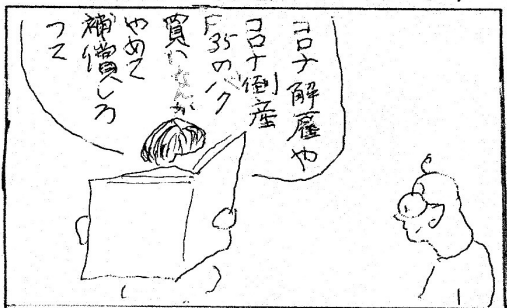 コロナ解雇や
コロナ倒産
F35のバク
買いなんか
やめて
補償しろ
って